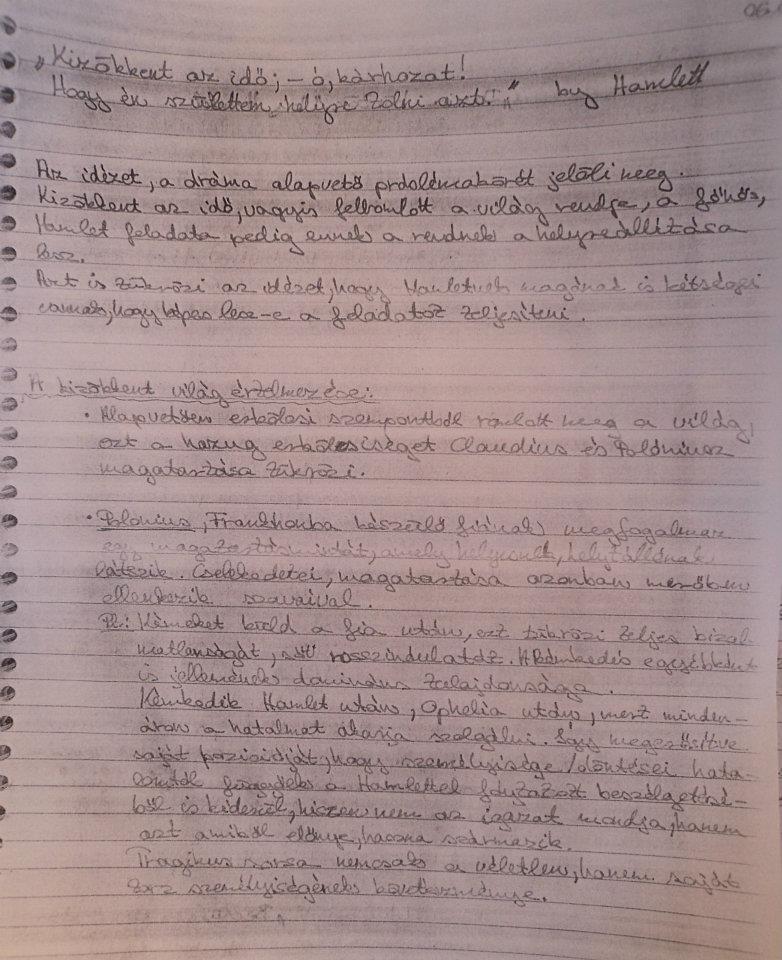 06
„Kizökkent az idő; – ó, kárhozat!
Hogy én születtem helyre tolni azt." by Hamlett
Az idézet, a dráma alapvető problémakörét jelöli meg.
Kizökkent az idő, vagyis felbomlott a világ rendje, a főhős,
Hamlet feladata pedig ennek a rendnek a helyreállítása
lesz.
Azt is tükrözi az idézet, hogy Hamletnek magának is kétségei
vannak, hogy képes lesz-e a feladatot teljesíteni.
A kizökkent világ értelmezése:
• Alapvetően erkölcsi szempontból romlott meg a világ,
ezt a hazug erkölcsiséget Claudius és Polóniusz
magatartása tükrözi.
• Polonius, Francihonba készülő fiának, megfogalmaz
egy magatartásmintát, amely helyesnek, helytállónak
látszik. Cselekedetei, magatartása azonban merőben
ellenkezik szavaival.
Pl.: Kémeket küld a fia után, ezt tükrözi teljes bizal
matlanságát, sőt rosszindulatát. A kémkedés egyébként
is jellemének domináns tulajdonsága.
Kémkedik Hamlet után, Ophelia után, mert minden-
áron a hatalmat akarja szolgálni. Így megerősítve
saját pozícióját, hogy személyisége/döntései hata-
lomtól függenek a Hamlettel folytatott beszélgetésé-
ből is kiderül, hiszen nem az igazat mondja, hanem
azt amiből előnye, haszna származik.
Tragikus sorsa nemcsak a véletlen, hanem saját
torz személyiségének következménye.